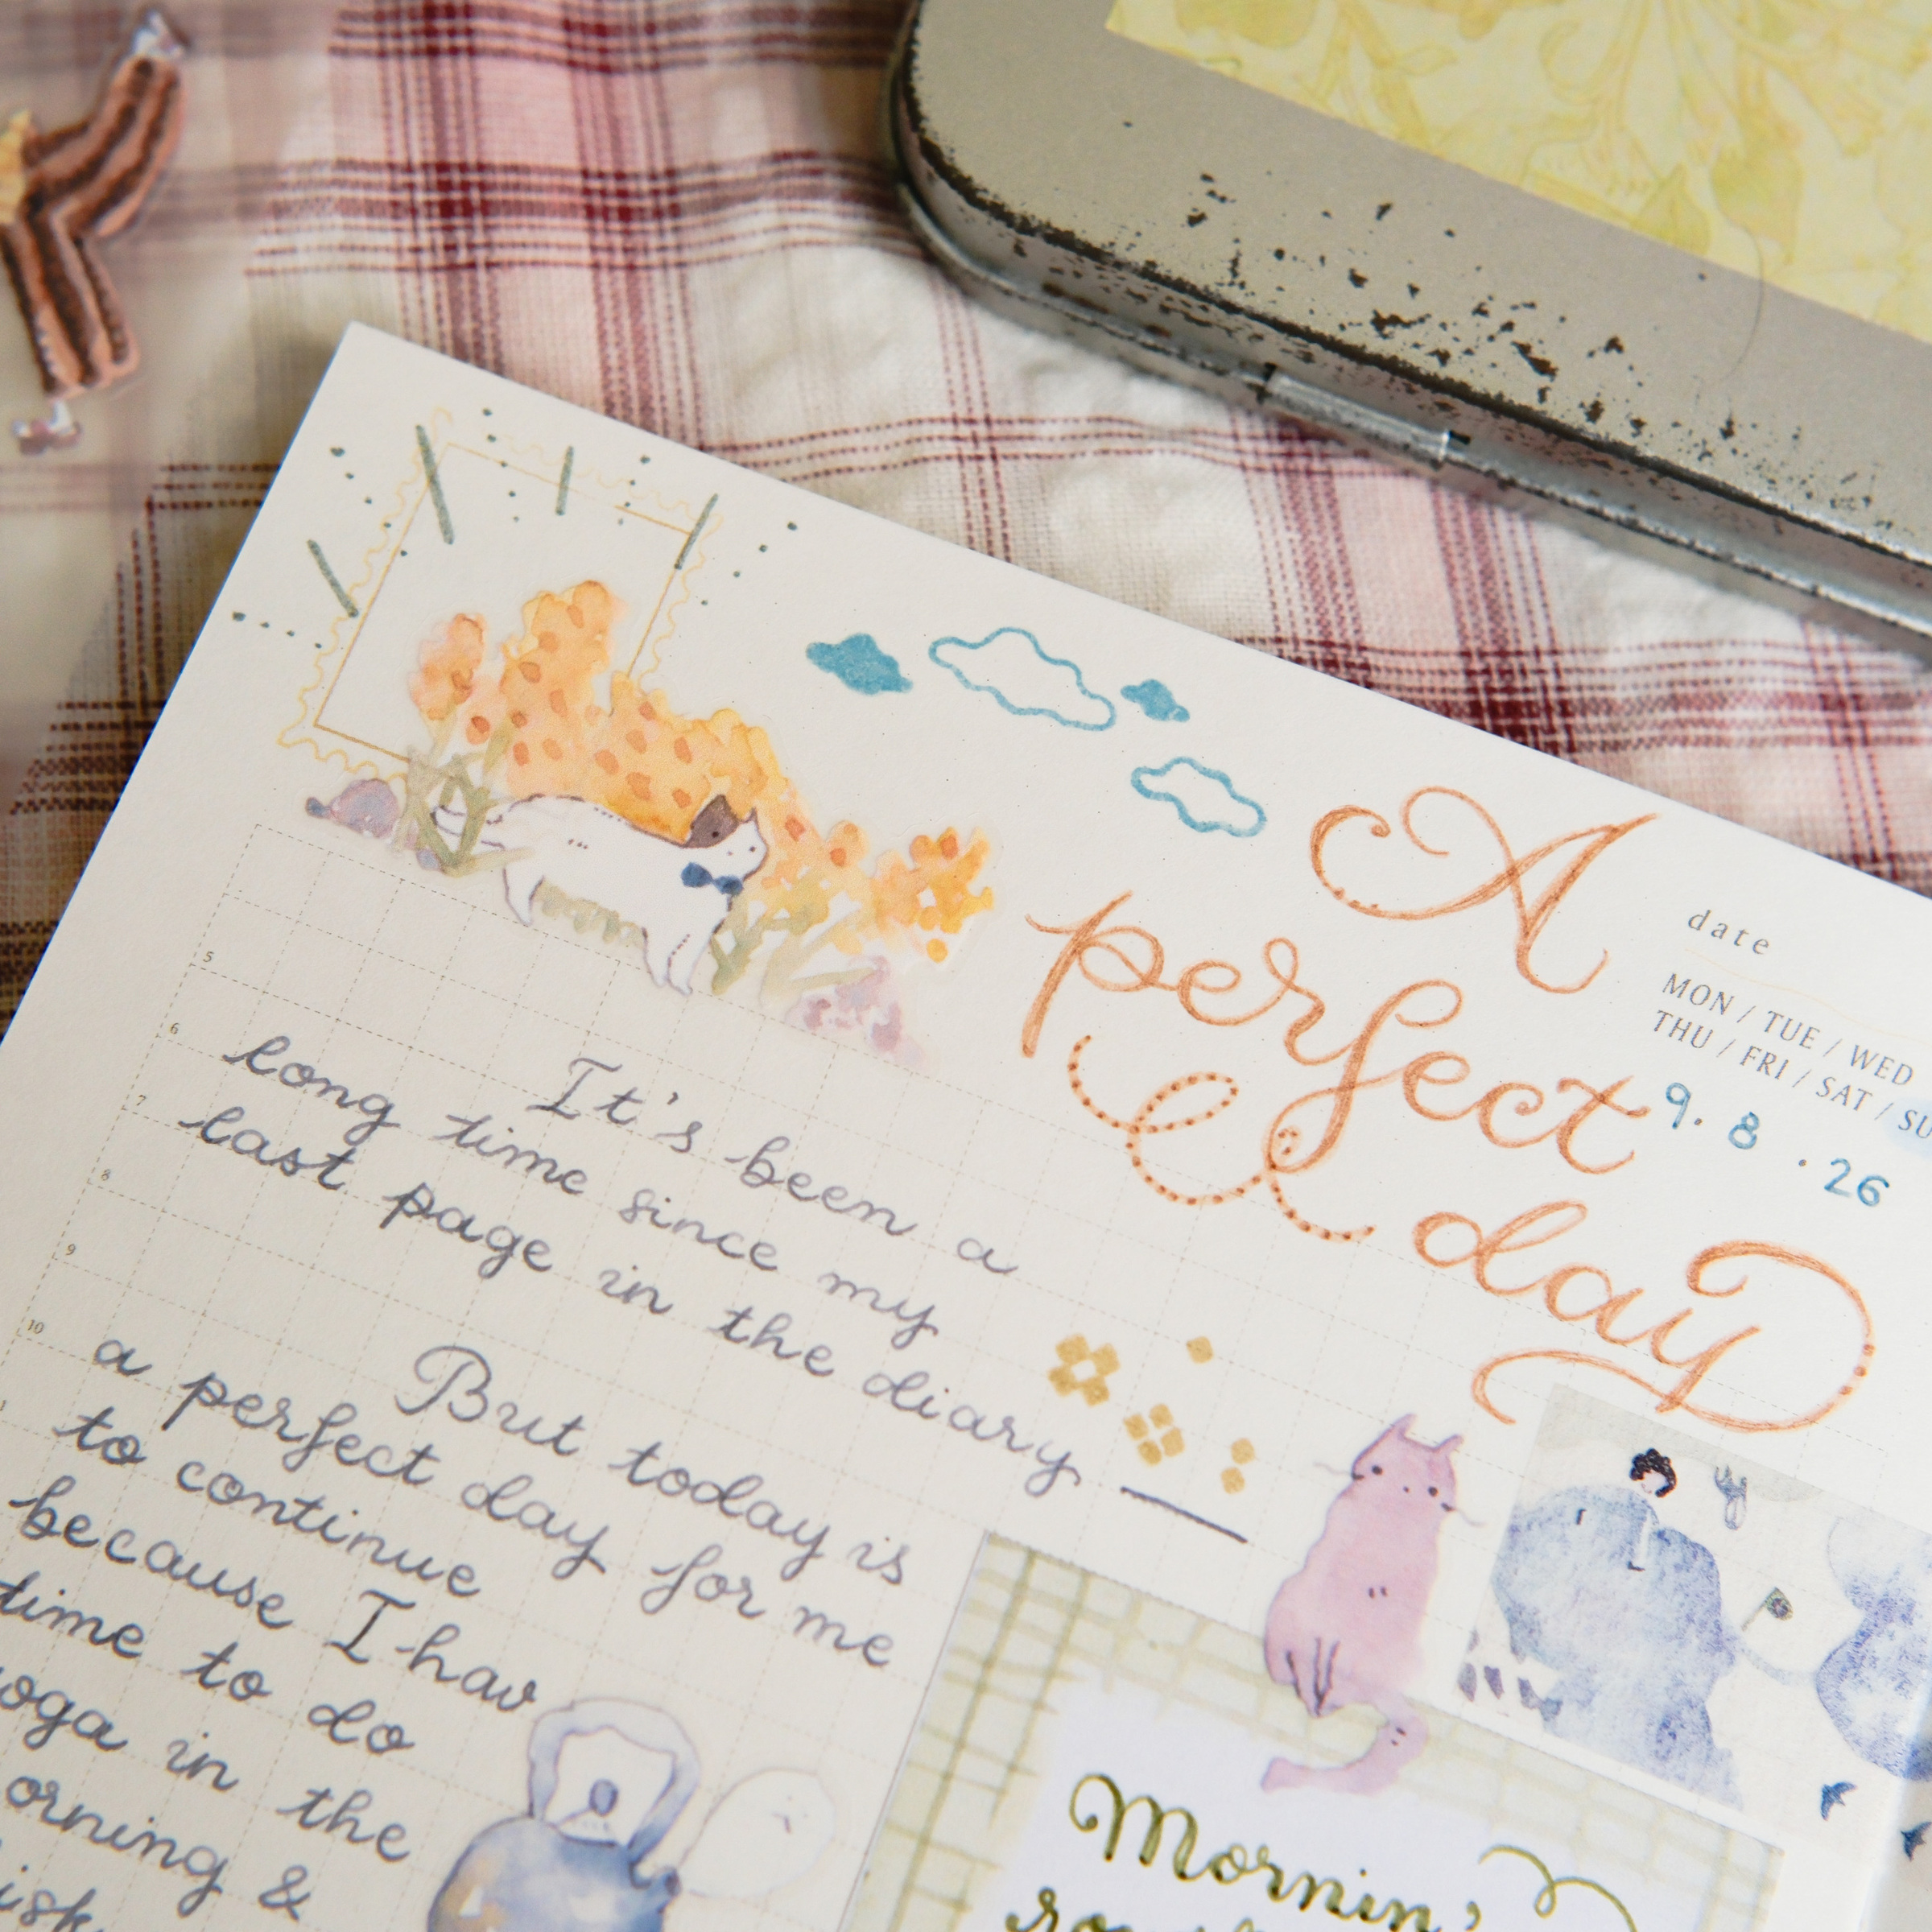 A
perfect
day
date
MON / TUE / WED
THU / FRI / SAT / SU
9. 8 . 26
5
6
7
8
9
10
It's been a
long time since my
last page in the diary
But today is
a perfect day for me
to continue
because I hav
time to do
oga in the
orning &
Mornin'